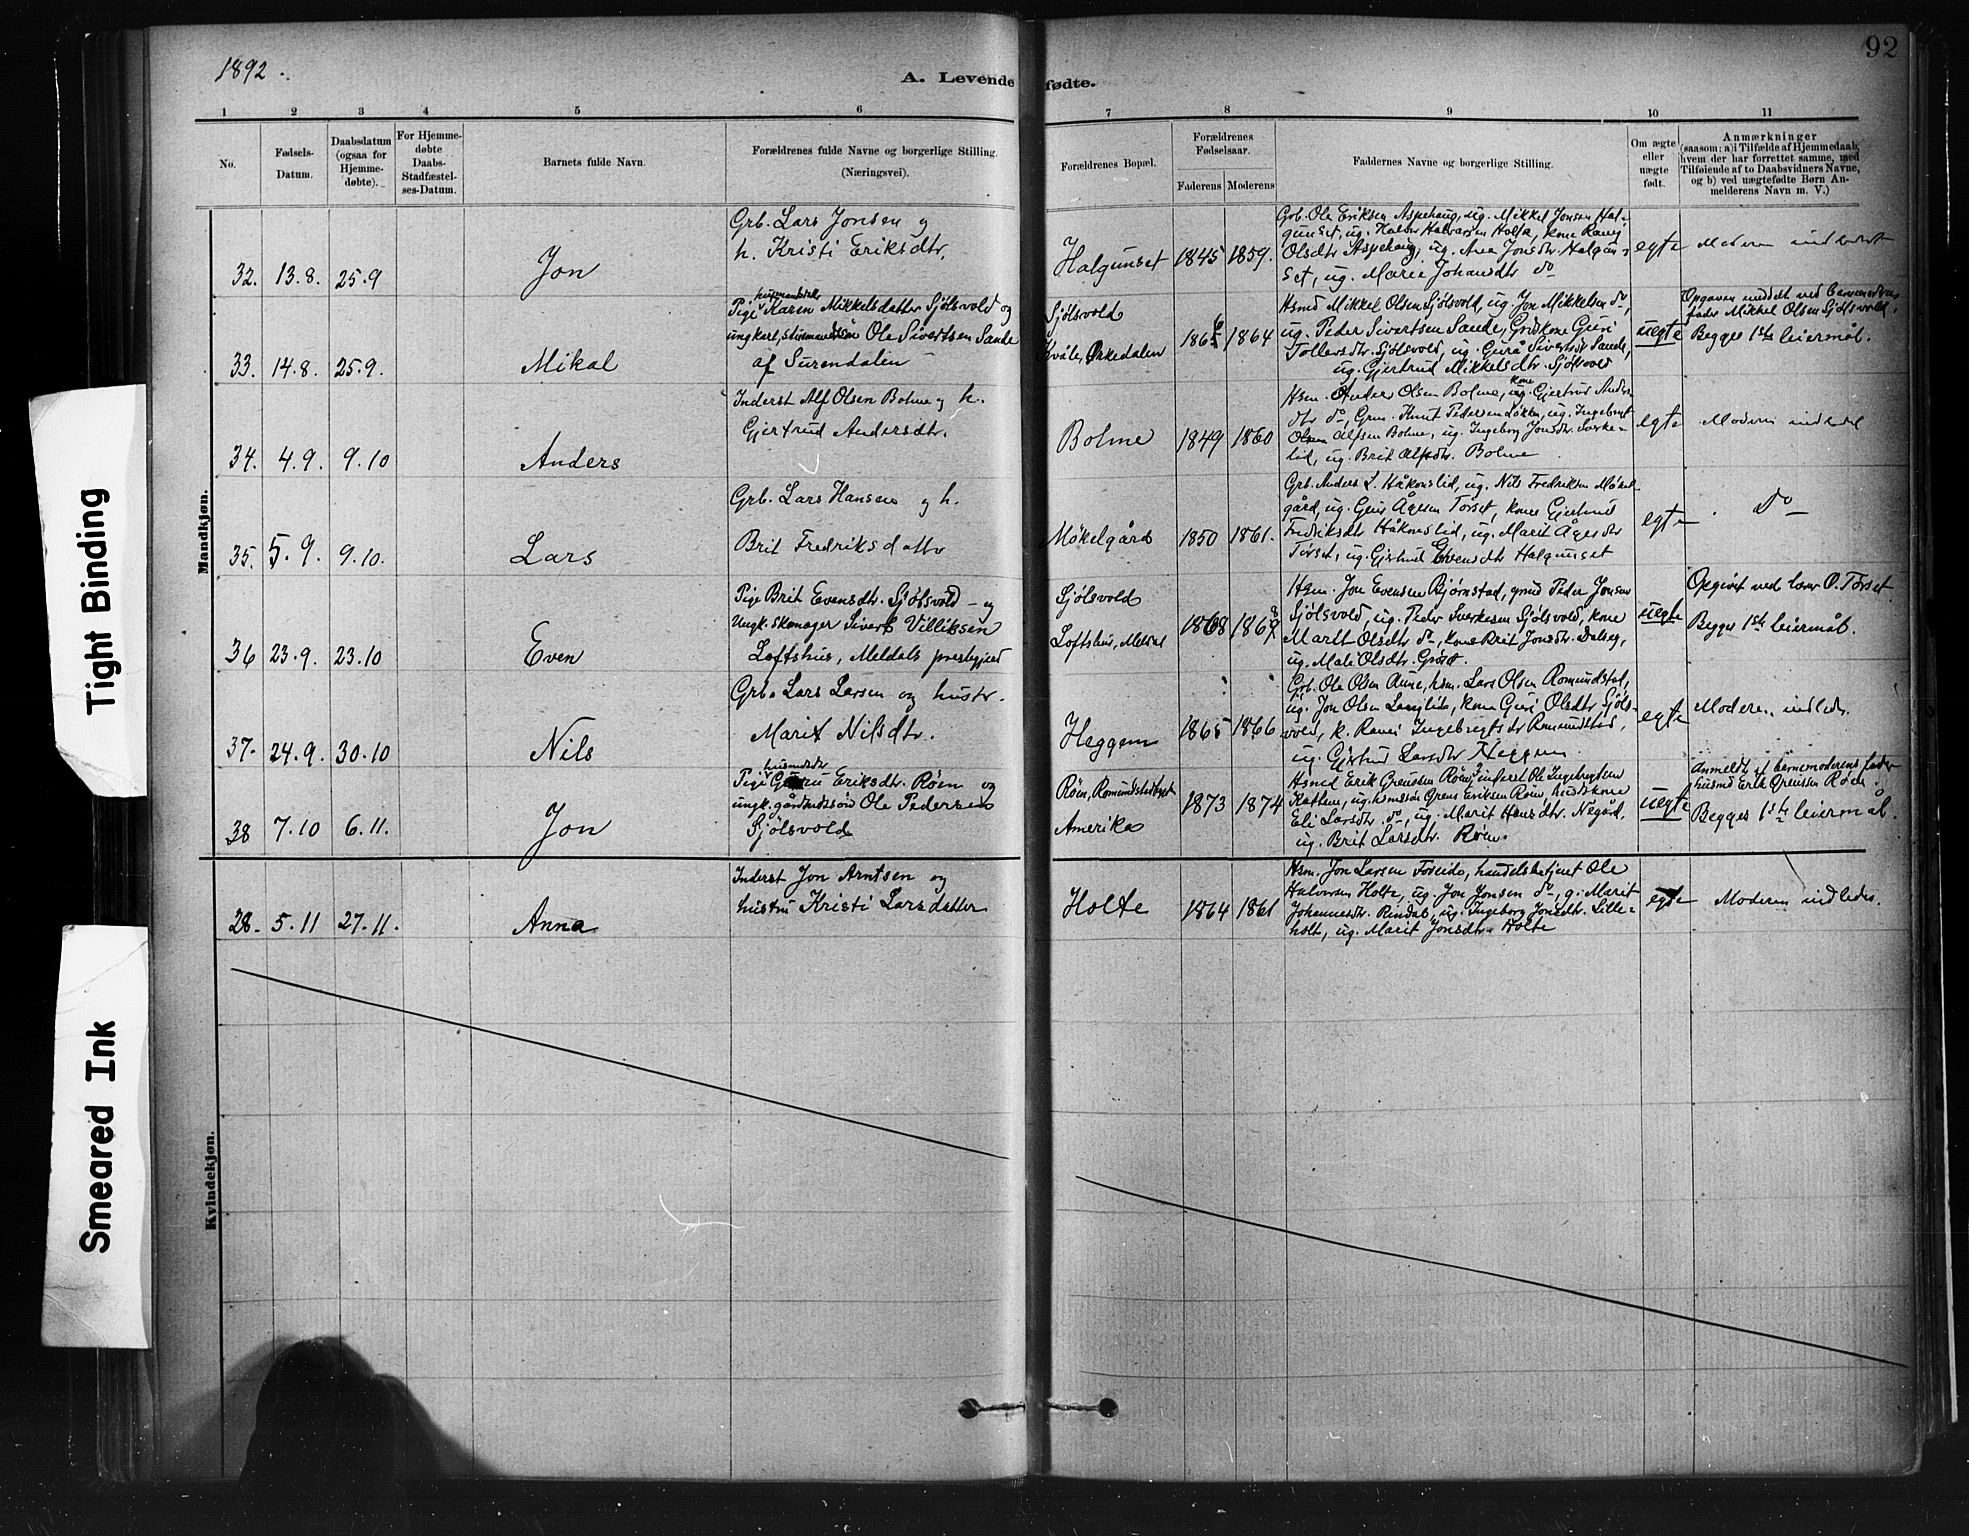 92
1892.
A. Levende fødte.
1 2 3 4 5 6 7 8 9 10 11
No.
Fødsels-
Datum.
Daabsdatum
(ogsaa for
Hjemme-
døbte).
For Hjemme-
døbte
Daabs-
Stadfæstel-
ses-Datum.
Barnets fulde Navn.
Forældrenes fulde Navne og borgerlige Stilling.
(Næringsvei).
Forældrenes Bopæl.
Forældrenes
Fødselsaar.
Faderens Moderens
Faddernes Navne og borgerlige Stilling.
Om ægte
eller
uægte
født.
Anmærkninger
(saasom: a) i Tilfælde af Hjemmedaab,
hvem der har forrettet samme, med
Tilføiende af to Daabsvidners Navne,
og b) ved uægtefødte Børn An-
melderens Navn m. V.)
Mandkjøn.
32. 13.8. 25.9
Jon
Grb. Lars Jonsen og
h. Kristi Eriksdtr.
Halgunset 1845 1859.
Grb. Ole Eriksen Aspehaug, ug. Mikkel Jonsen Hal-
gunset, ug. Halvor Halvorsen Holte, kone Ranei
Olsdtr Aspehaug, ug. Ana Jonsdtr. Halgun-
set, ug. Marie Johansdtr do
egte
Moderen indledet
33. 14.8. 25.9.
Mikal
Pige Karen Mikkelsdatter Sjølsvold og
ungkarl, Ole Sivertsen Sande
af Surendalen
Sjølsvold
Kvåle, Orkedalen
1864
Hsmd Mikkel Olsen Sjølsvold, ug. Jon Mikkelsen do,
ug. Peder Sivertsen Sande, Grdkone Guri
Tollevsdtr. Sjølsvold, ug. Gurå Sivertsdtr Sande,
ug. Gjertrud Mikkelsdtr. Sjølsvold
uegte
Opgaven meddelt ved barnemoderens
fader Mikkel Olsen Sjølsvold.
Begges 1ste leiermål.
34. 4.9. 9.10
Anders
Inderst Alf Olsen Bolme og h.
Gjertrud Andersdtr.
Bolme 1849 1860
Hsm. Anders Olsen Bolme, kone Gjertrud Anders-
dtr do, Grm. Knut Pedersen Løkken, ug. Ingebrigt
Alfsen Bolme, ug. Ingeborg Jonsdtr. Sverke-
lid, ug. Brit Alfsdtr. Bolme
egte
Moderen indledet
35. 5.9. 9.10.
Lars
Grb. Lars Hansen og h.
Brit Fredriksdatter
Møkelgård 1850 1861.
Grb. Anders L. Håkonslid, ug. Nils Fredriksen Møkel-
gård, ug. Ågesen Tørset, kone Gjertrud
Fredriksdtr Håkonslid, ug. Marit Ågesdtr
Tørset, ug. Gjertrud Evensdtr Halgunset
egte
do
36 23.9. 23.10
Even
Pige Brit Evensdtr. Sjølsvold - og
Ungk. skomager Sivert Villiksen
Loftshus, Meldals prestegjeld
Sjølsvold
Loftshus, Meldal
1868
Hsm. Jon Evensen Bjørnstad, gmd Peder Jonsen
Sjølsvold, ug. Peder Sverkesen Sjølsvold, kone
Marit Olsdtr do, kone Brit Jonsdtr. Dalseg,
ug. Mali Olsdtr. Grøset.
uegte
Opgivet ved lærer O. Tørset.
Begges 1ste leiermål.
37. 24.9. 30.10
Nils
Grb. Lars Larsen og hustr.
Marit Nilsdtr.
Heggem 1865 1866
Grb. Ole Olsen Aune, hsm. Lars Olsen Romundstad,
ug. Jon Olsen Langlide, kone Guri Olsdtr Sjøls-
vold, k. Ranei Ingebrigtsdtr Romundstad,
ug. Gjertrud Larsdtr Heggem.
egte
Moderen indledt.
38 7.10 6.11.
Jon
Pige Guru Eriksdtr. Røen og
ungk. gårdmdssøn Ole Pedersen
Sjølsvold
Røen, Romundstadbygd
Amerika
1873 1874
Hsmd Erik Grensten Røen, inderst Ole Ingebrigtsen
ug. hsmssøn Grens Eriksen Røen, husdskone
Eli Larsdtr. do, ug. Marit Hansdtr. Negård,
ug. Brit Larsdtr. Røen.
uegte
Anmeldt af barnemoderens fader
husmd Erik Grensten Røen.
Begges 1ste leiermål.
Kvindekjøn.
28. 5.11 27.11.
Anna
Inderst Jon Arntsen og
hustru Kristi Larsdatter
Holte 1864 1861
Hsm. Jon Larsen Foseide, handelsbetjent Ole
Halvorsen Holte, ug. Jon Jonsen do, g. Marit
Johannesdtr. Rindal, ug. Ingeborg Jonsdtr. Lille-
holt, ug. Marit Jonsdtr. Holte
egte
Moderen indledes.
Tight Binding
Smeared Ink